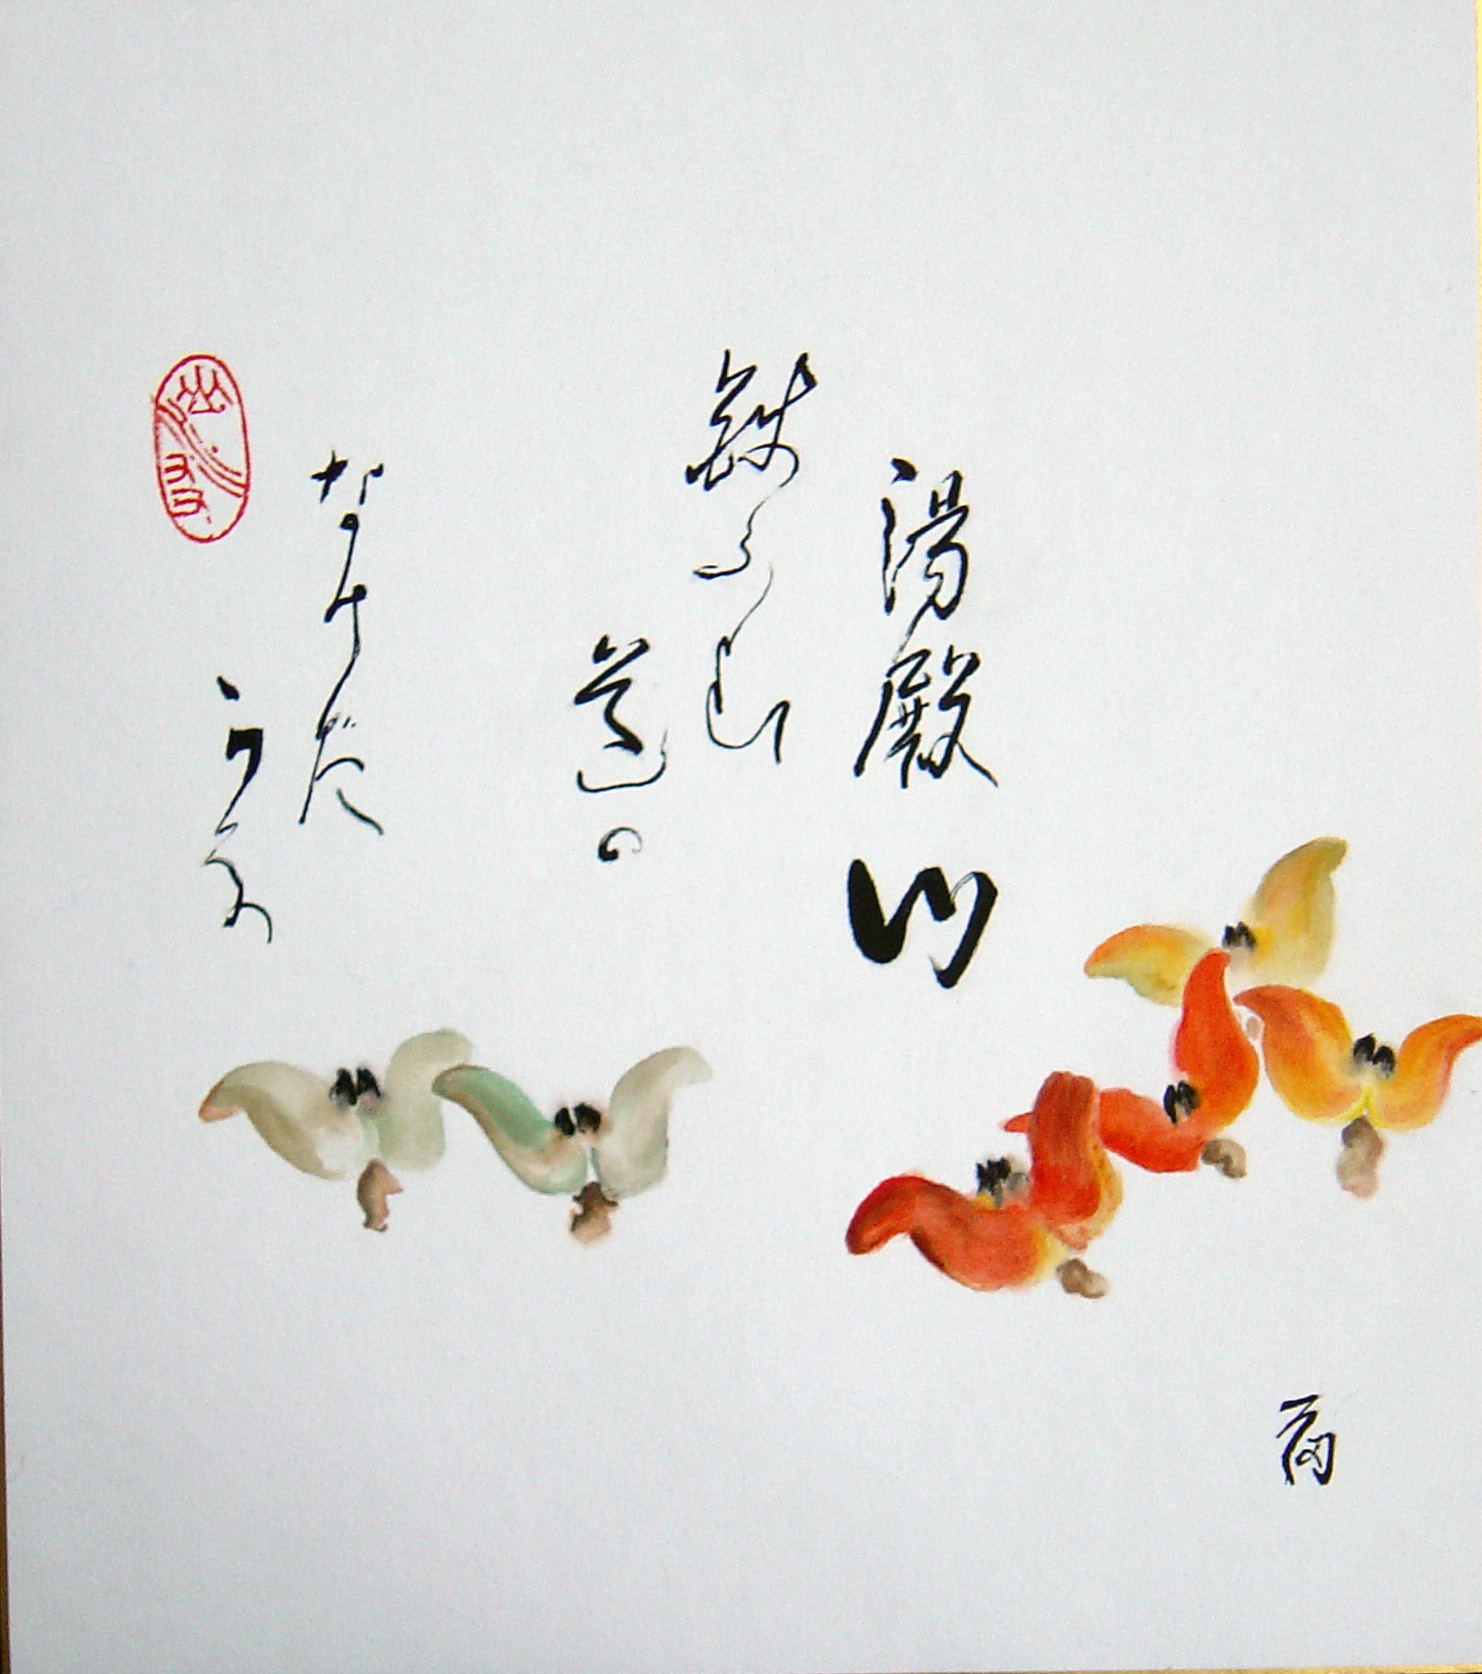 湯殿山
銭ふむ
道の
なみだ
かな